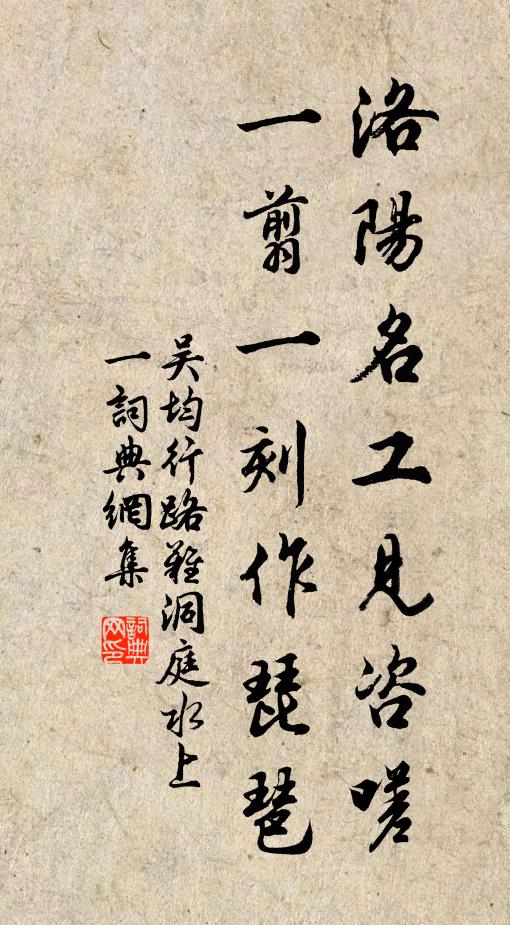 洛陽名工見咨嗟
一翦一刻作琵琶
吴均行路難洞庭水上
一詞典網集
詞典
网印